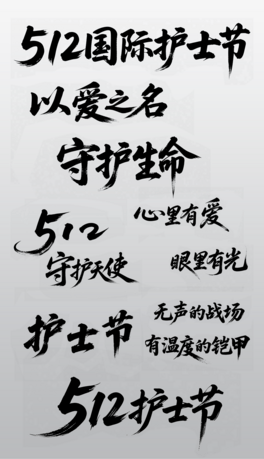 512国际护士节
以爱之名
守护生命
心里有爱
512
守护天使
眼里有光
护士节
无声的战场
有温度的铠甲
512护士节